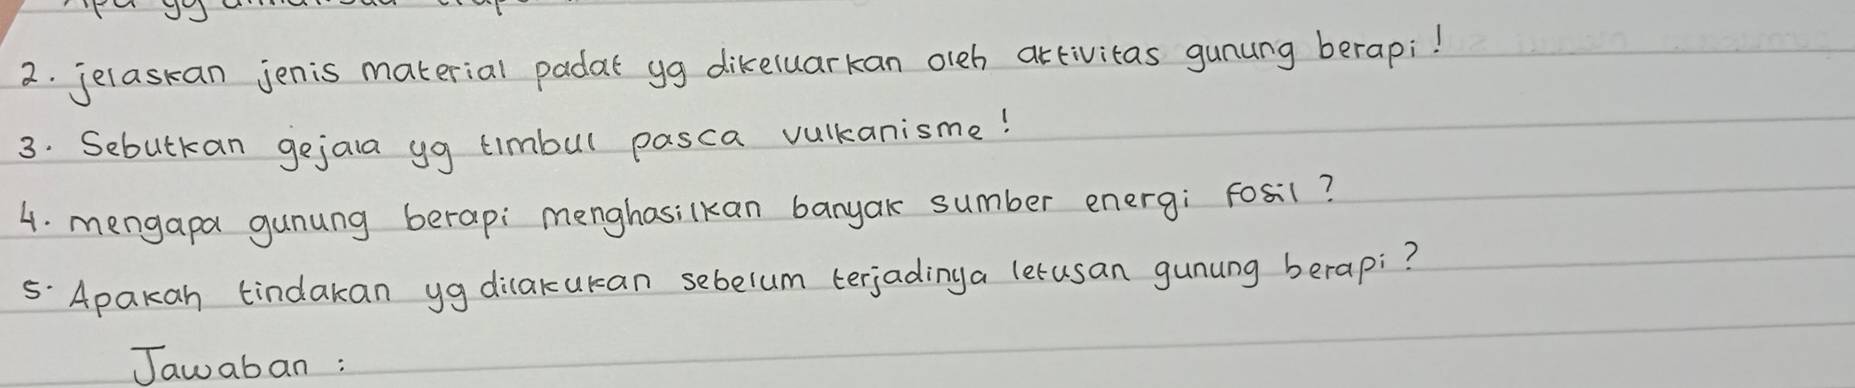 2. jelaskan jenis material padat yg dikeluarkan oleh aktivitas gunung berapi!
3. Sebutkan gejala yg timbul pasca vulkanisme!
4. mengapa gunung berapi menghasilkan banyak sumber energi fosil?
5. Apakah tindakan yg dilakukan sebelum terjadinya letusan gunung berapi?
Jawaban: